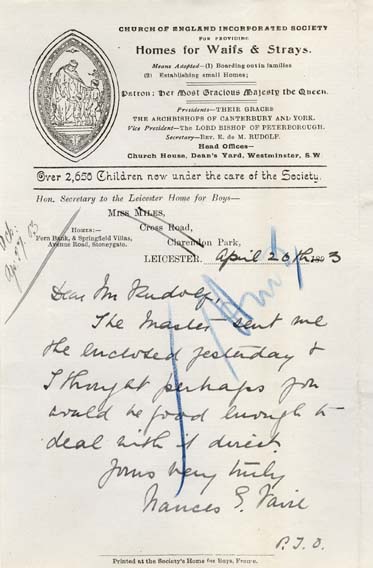 CHURCH OF ENGLAND INCORPORATED SOCIETY
FOR PROVIDING
Homes for Waifs & Strays.
Means Adopted—(1) Boarding out in families
(2) Establishing small Homes;
Patron: Her Most Gracious Majesty the Queen.
Presidents—THEIR GRACES
THE ARCHBISHOPS OF CANTERBURY AND YORK.
Vice President—The LORD BISHOP OF PETERBOROUGH.
Secretary—REV. E. DE M. RUDOLF.
Head Offices—
Church House, Dean's Yard, Westminster, S.W
Over 2,650 Children now under the care of the Society.
Hon. Secretary to the Leicester Home for Boys—
MISS MILES,
Cross Road,
Clarendon Park,
HOMES:—
Fern Bank, & Springfield Villas,
Avenue Road, Stoneygate.
Ap. 27. 93
LEICESTER. April 26th 1893
Dear Mr Rudolf,
The Master sent me
the enclosed yesterday &
I thought perhaps you
would be good enough to
deal with it direct.
Yours very truly
Frances E.
P.T.O.
Printed at the Society's Home for Boys, Frome.